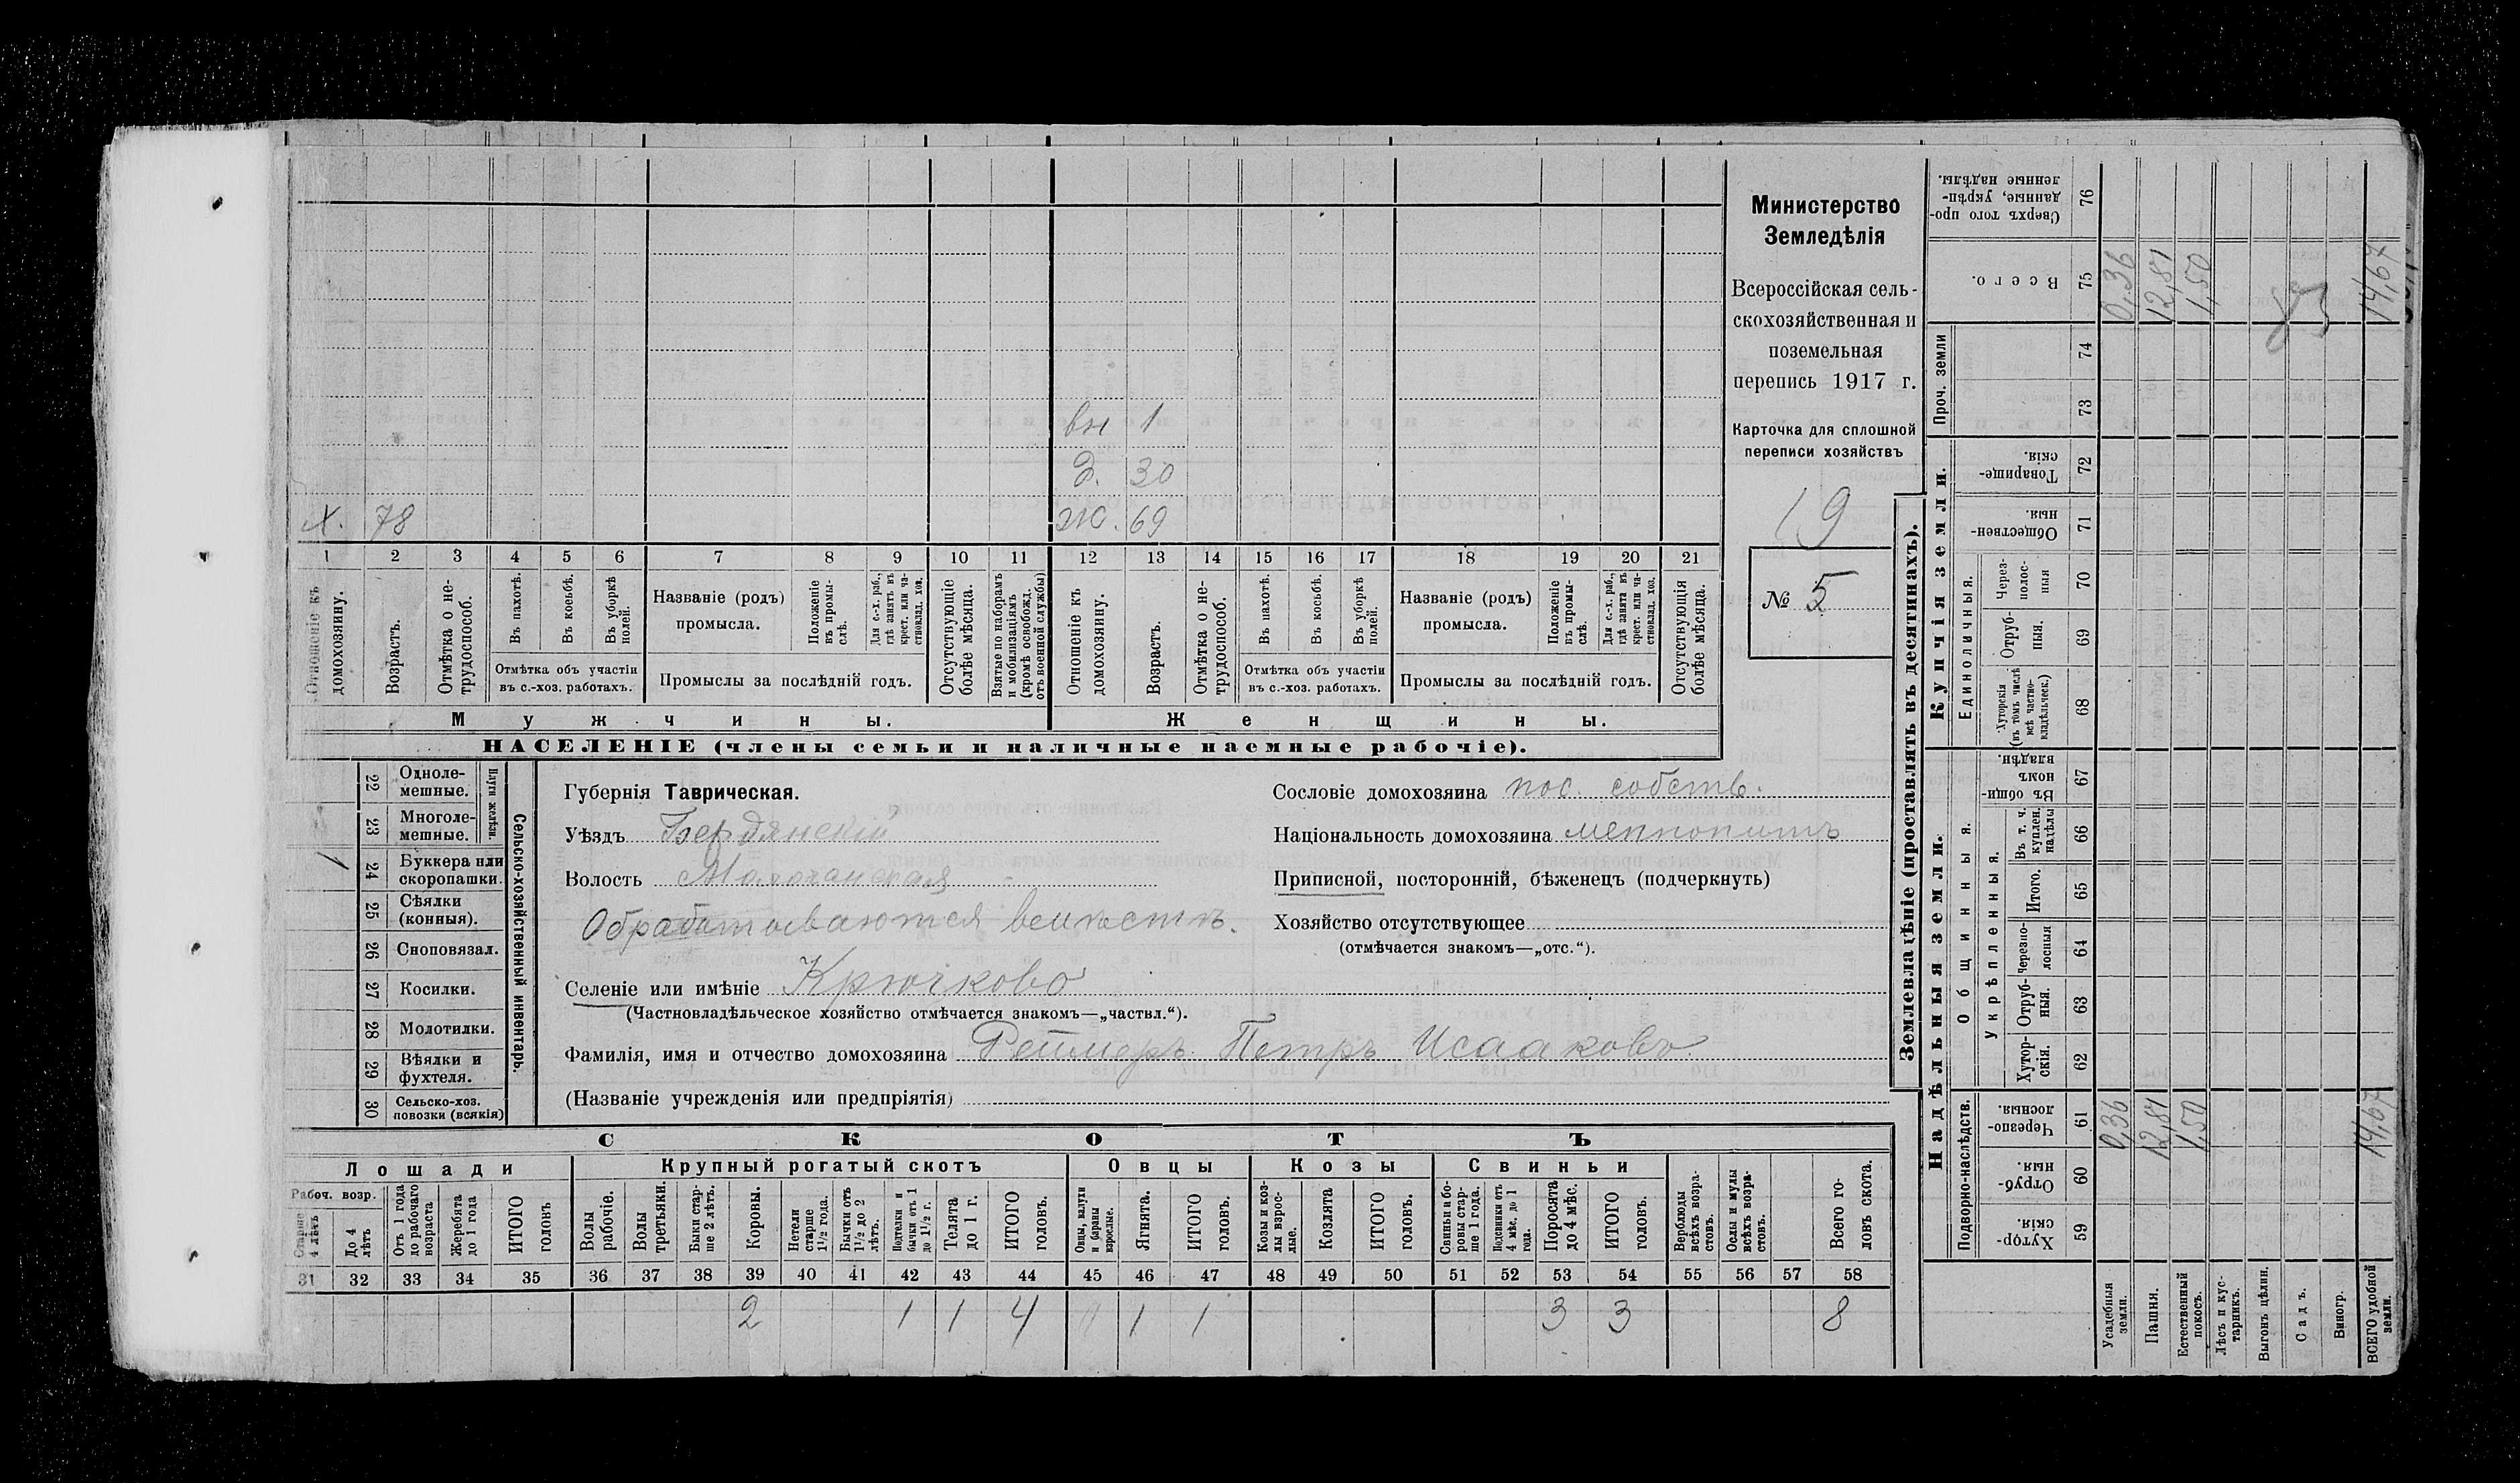 Министерство
Земледѣлія
Всероссійская сель-
скохозяйственная и
поземельная
перепись 1917 г.
Карточка для сплошной
переписи хозяйствъ
19
№ 5
вн 1
Д. 30
Х. 78
Ж. 69
1 2 3 4 5 6 7 8 9 10 11 12 13 14 15 16 17 18 19 20 21
Отношеніе къ домохозяину.
Возрастъ.
Отмѣтка о не-трудоспособ.
Въ пахотѣ.
Въ косьбѣ.
Въ уборкѣ полей.
Отмѣтка объ участіи
въ с.-хоз. работахъ.
Названіе (родъ)
промысла.
Положеніе въ промы-слѣ.
Для с.-х. раб., гдѣ занятъ въ крест. или ча-стновлад. хоз.
Промыслы за послѣдній годъ.
Отсутствующіе болѣе мѣсяца.
Взятые по наборамъ и мобилизаціямъ (кромѣ освобожд. отъ военной службы)
Отношеніе къ домохозяину.
Возрастъ.
Отмѣтка о не-трудоспособ.
Въ пахотѣ.
Въ косьбѣ.
Въ уборкѣ полей.
Отмѣтка объ участіи
въ с.-хоз. работахъ.
Названіе (родъ)
промысла.
Положеніе въ промы-слѣ.
Для с.-х. раб., гдѣ занята въ крест. или ча-стновлад. хоз.
Промыслы за послѣдній годъ.
Отсутствующія болѣе мѣсяца.
Мужчины. Женщины.
НАСЕЛЕНІЕ (члены семьи и наличные наемные рабочіе).
Сельско-хозяйственный инвентарь.
Плуги желѣзн.
22 Одноле-мешные.
23 Многоле-мешные.
1 24 Буккера или скоропашки.
25 Сѣялки (конныя).
26 Сноповязал.
27 Косилки.
28 Молотилки.
29 Вѣялки и фухтеля.
30 Сельско-хоз. повозки (всякія)
Губернія Таврическая.
Уѣздъ Бердянскій
Волость Молочанская
Обрабатываются вмѣстѣ.
Селеніе или имѣніе Крючково
(Частновладѣльческое хозяйство отмѣчается знакомъ—„частвл.“).
Фамилія, имя и отчество домохозяина Реймеръ Петръ Исааковъ.
(Названіе учрежденія или предпріятія)
Сословіе домохозяина пос. собств.
Національность домохозяина меннонитъ
Приписной, посторонній, бѣженецъ (подчеркнуть)
Хозяйство отсутствующее
(отмѣчается знакомъ—„отс.“).
СКОТЪ
Лошади Крупный рогатый скотъ Овцы Козы Свиньи
Рабоч. возр.
Старше 4 лѣтъ
До 4 лѣтъ
Отъ 1 года до рабочаго возраста
Жеребята до 1 года
ИТОГО головъ
Волы рабочіе.
Волы третьяки.
Быки стар-ше 2 лѣтъ.
Коровы.
Нетели старше 1½ года.
Бычки отъ 1½ до 2 лѣтъ.
Подтелки и бычки отъ 1 до 1½ г.
Телята до 1 г.
ИТОГО головъ.
Овцы, валухи и бараны взрослые.
Ягнята.
ИТОГО головъ.
Козы и коз-лы взрос-лые.
Козлята
ИТОГО головъ.
Свиньи и бо-ровы стар-ше 1 года.
Подсвинки отъ 4 мѣс. до 1 года.
Поросята до 4 мѣс.
ИТОГО головъ.
Верблюды всѣхъ возра-стовъ.
Ослы и мулы всѣхъ возра-стовъ.
Всего го-ловъ скота.
31 32 33 34 35 36 37 38 39 40 41 42 43 44 45 46 47 48 49 50 51 52 53 54 55 56 57 58
2 1 1 4 1 1 3 3 8
Землевладѣніе (проставлять въ десятинахъ).
Сверхъ того про-данные, укрѣп-ленные надѣлы. 76
Всего. 75 0,36 12,81 1,50 14,67
83
Проч. земли 74 73
Купчія земли.
Товарище-скія. 72
Обществен-ныя. 71
Единоличныя.
Через-полос-ныя 70
Отруб-ныя. 69
Хуторскія (въ томъ числѣ всѣ частно-владѣльческ.) 68
Надѣльныя земли.
Общинныя.
Въ общи-номъ владѣн. 67
Укрѣпленныя.
Въ т. ч. куплен. надѣлы 66
Итого. 65
Черезпо-лосныя 64
Отруб-ныя. 63
Хутор-скія. 62
Подворно-наслѣдств.
Черезпо-лосныя. 61 0,36 12,81 1,50 14,67
Отруб-ныя. 60
Хутор-скія. 59
Усадебныя земли.
Пашня.
Естественный покосъ.
Лѣсъ и кус-тарникъ.
Выгонъ цѣлин.
Садъ.
Виногр.
ВСЕГО удобной земли.